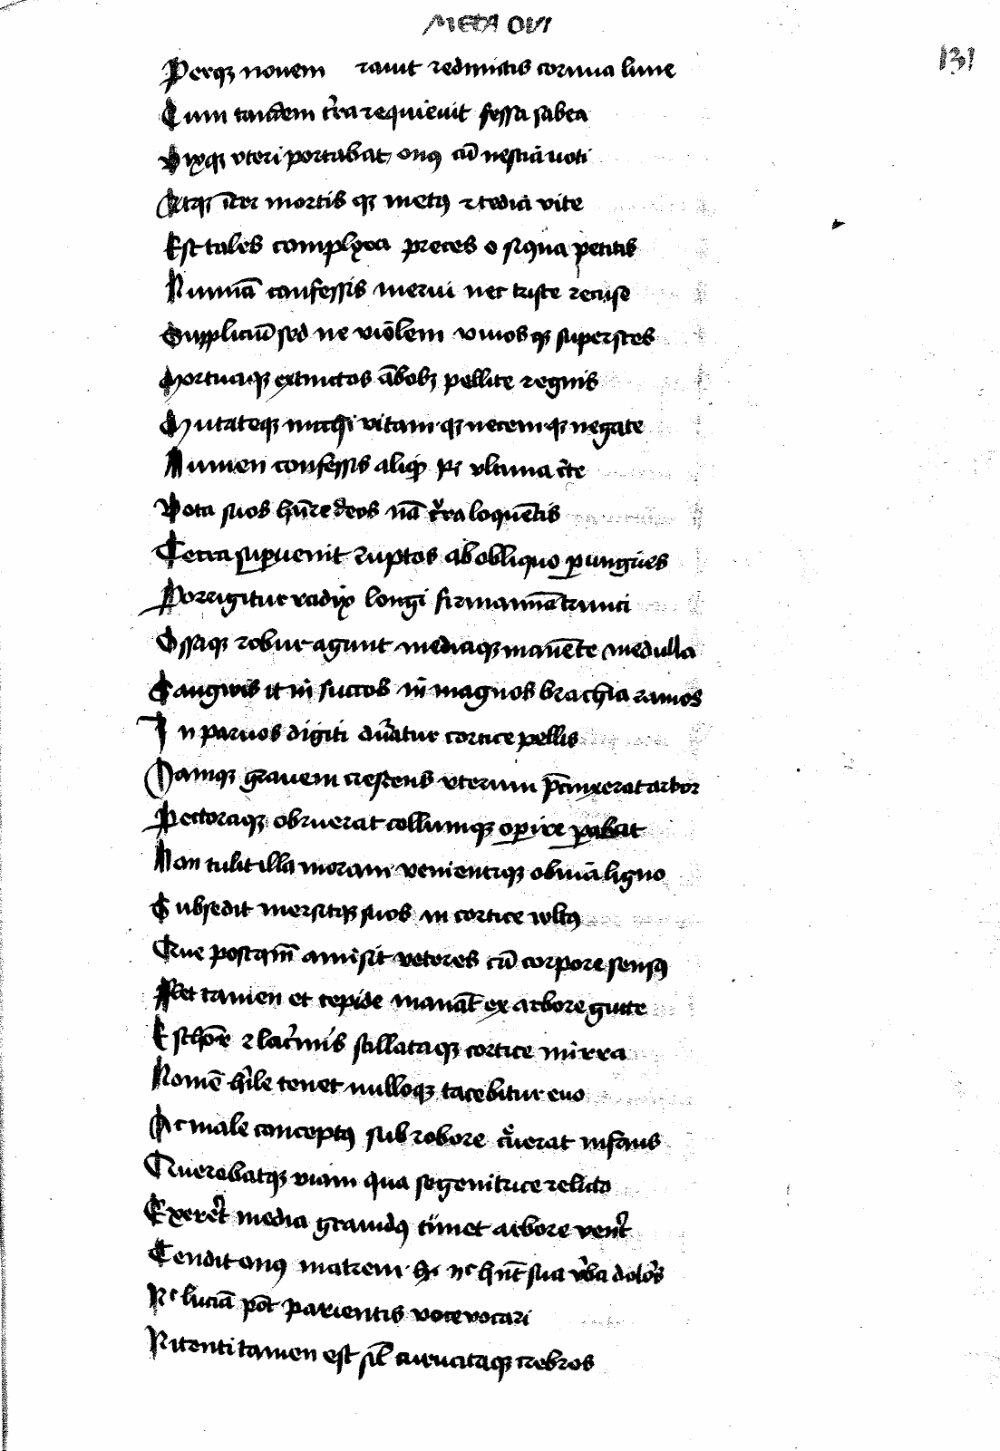 META OVI
131
Perqꝫ nouem rauit redimitis cornua lune
Cum tandem tr̃a requieuit fessa sabea
Vixqꝫ vteri portabat onꝰ cũ nescia uoti
Atqꝫ ĩter mortis qꝫ metꝰ ⁊ tedia vite
Est tales complexa preces o siqua petitis
Numinã confessis merui nec triste recuso
Suppliciũ sed ne violem viuos qꝫ superstes
Mortuaqꝫ extinctos ãbobꝫ pellite regnis
Mutateqꝫ michi vitam qꝫ necem qꝫ negate
Numen confessis aliqͩ ultima c̃te
Vota suos hũere deos nã cr̃ra loquẽtis
Terra suꝑuenit ruptos ab obliquo ꝑ ungues
Porrigitur radix longi firmamina trunci
Ossaqꝫ robur agunt mediaqꝫ manẽte medulla
Sanguis it in succos in magnos brachia ramos
In paruos digiti durãtur cortice pellis
Namqꝫ grauem crescens vterum p̃cinxerat arbor
Pectoraqꝫ obruerat collumqꝫ oꝑire ꝑabat
Non tulit illa moram venientiqꝫ obuiã ligno
Subsedit mersitqꝫ suos in cortice vultꝰ
Que postqͣm amisit veteres cũ corpore sensꝰ
Flet tamen et tepide manãt ex arbore gutte
Est honor ⁊ lacr̃mis stillataqꝫ cortice mirra
Nomẽ h̃ile tenet nulloqꝫ tacebitur euo
Ac male conceptꝰ sub robore cr̃uerat infans
Querebatqꝫ viam qua se genitrice relicta
Exerer̃t media grauidꝰ tumet arbore vent̃
Tendit onꝰ matrem nᶜ hñt sua v̾ba dolor̃s
Nᶜ luciã pot̃ parientis voce vocari
Nitenti tamen est sil̃ curuataqꝫ crebros